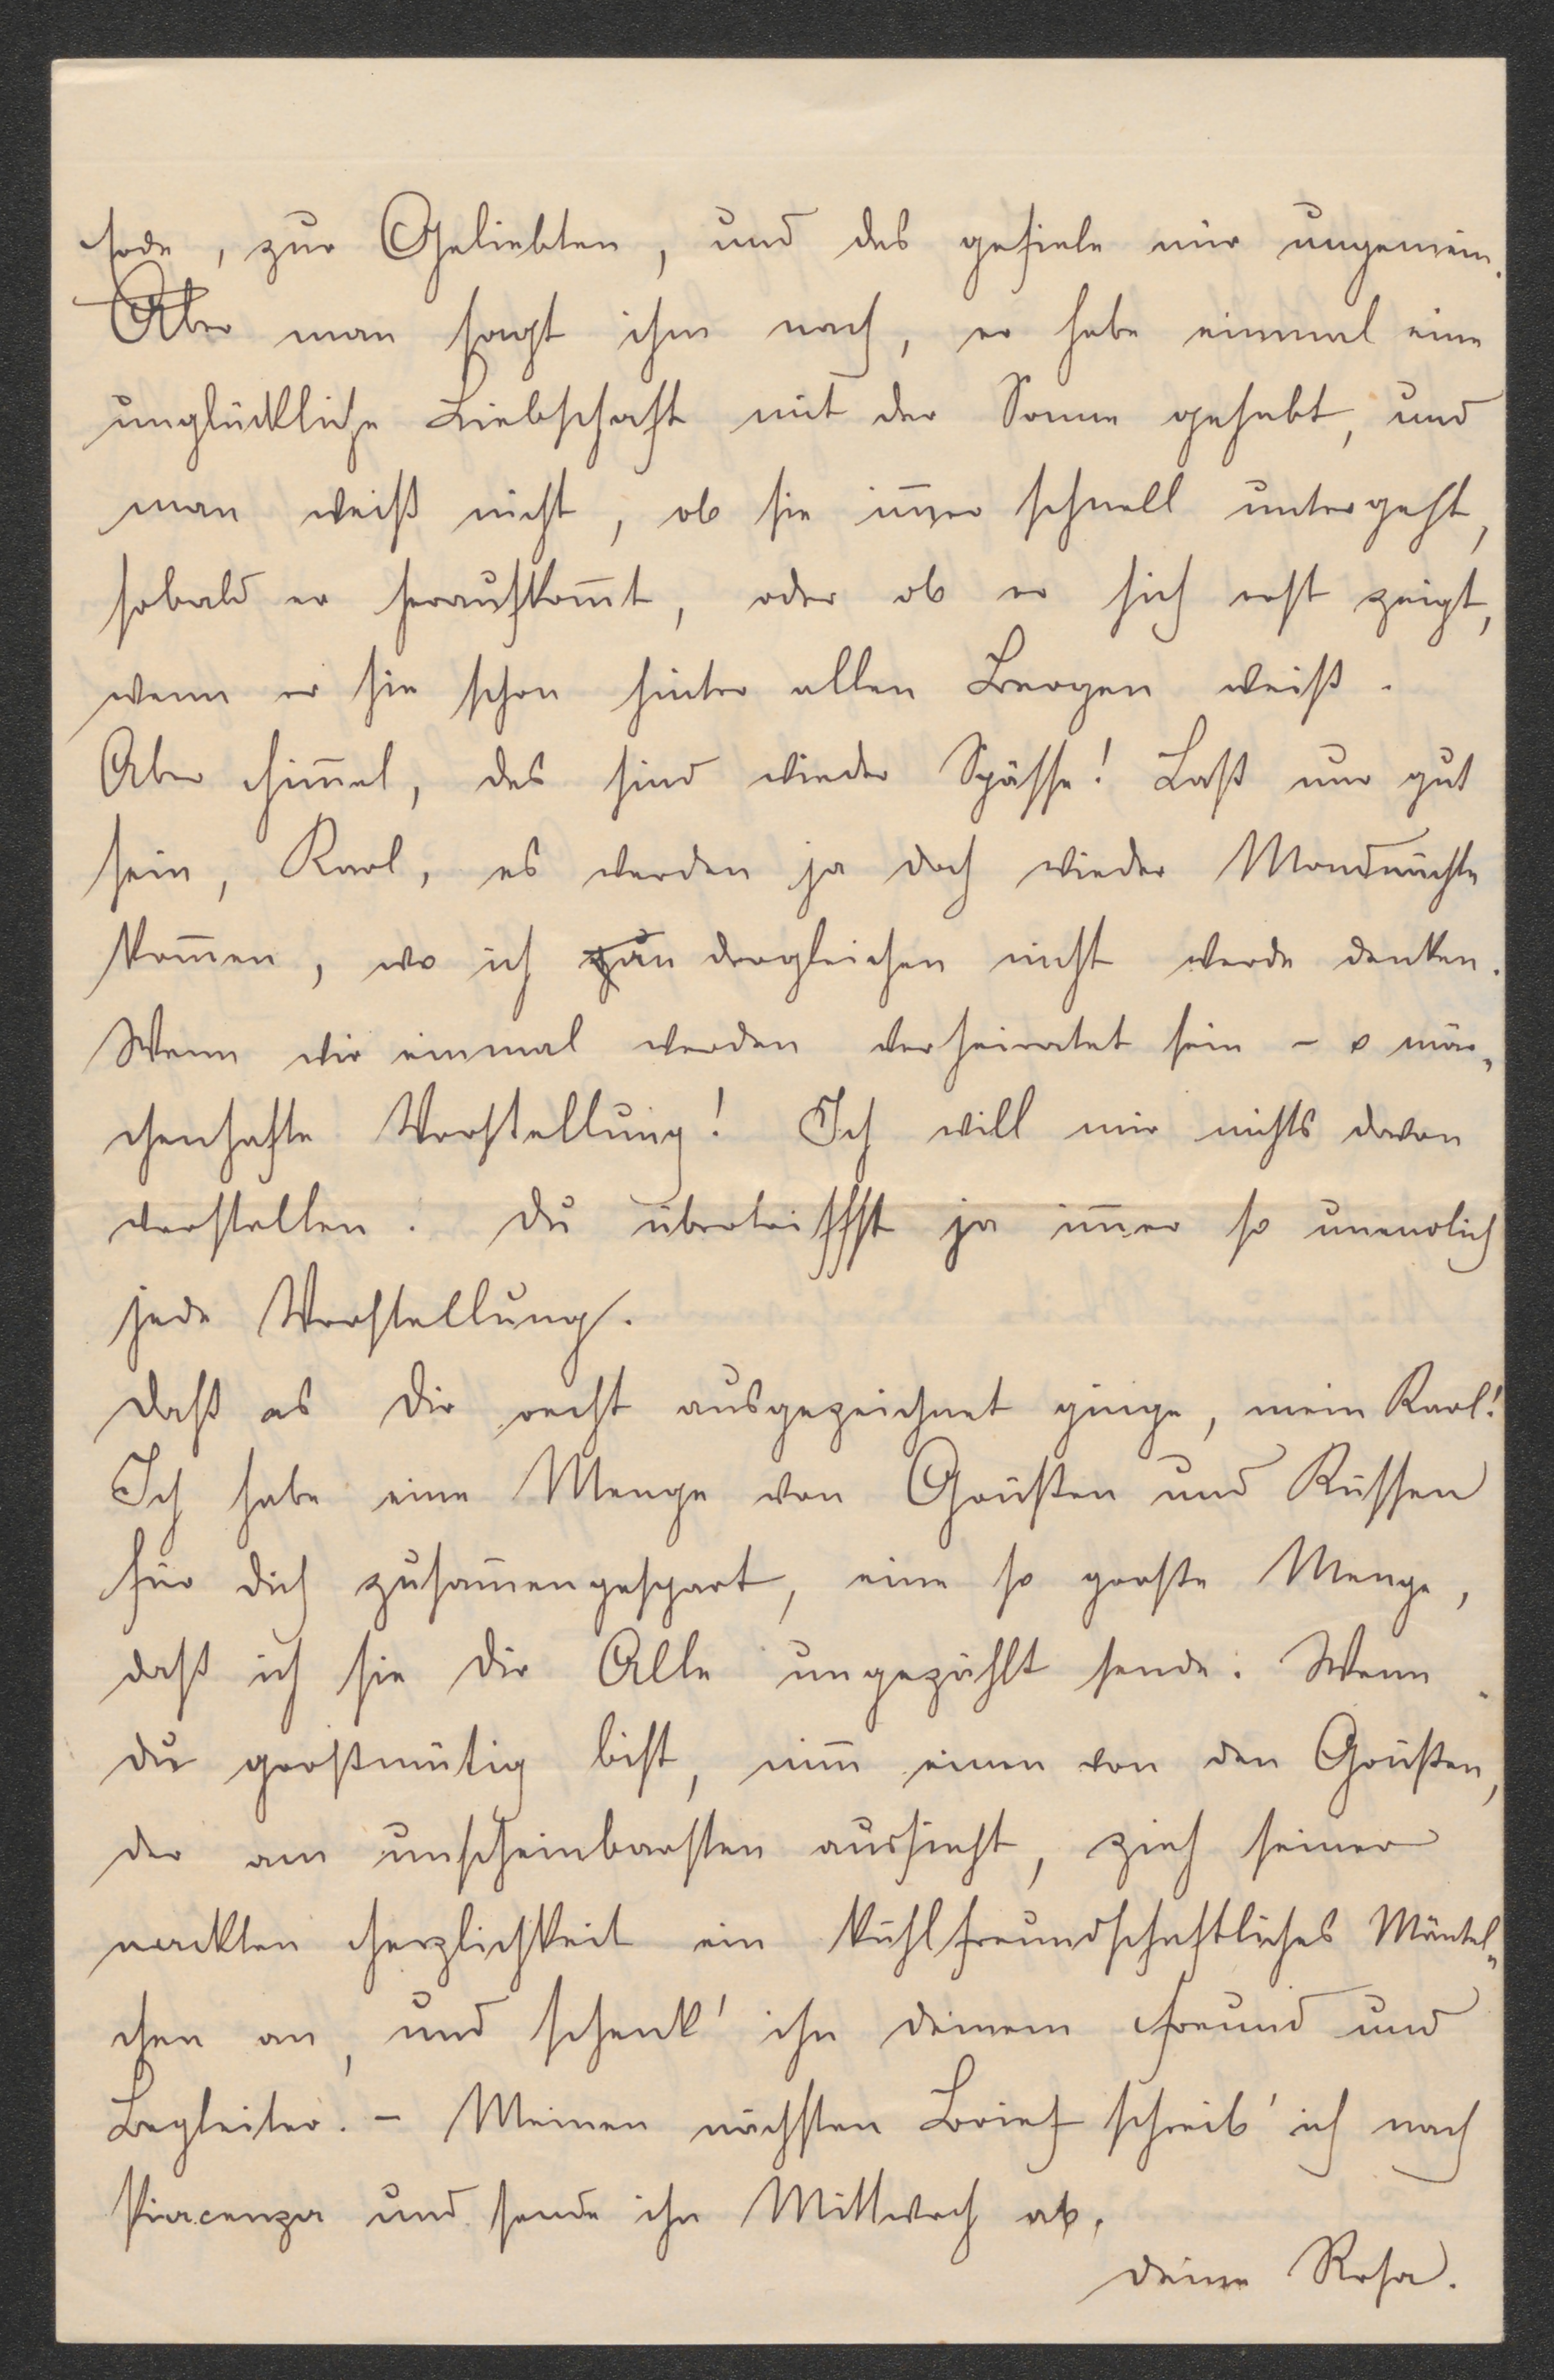 Erde, zur Geliebten, und das gefiele mir ungemein.
Aber man sagt ihm nach, er habe einmal eine
unglückliche Liebschaft mit der Sonne gehabt, und
man weiß nicht, ob sie im̄er schnell untergeht,
sobald er heraufkom̄t, oder ob er sich erst zeigt,
wenn er sie schon hinter allen Bergen weiß.
Aber Him̄el, das sind wieder Spässe! Laß nur gut
sein, Karl, es werden ja doch wieder Mondnächte
kom̄en, wo ich an dergleichen nicht werde denken.
Wenn wir einmal werden verheiratet sein – o mär-
chenhafte Vorstellung! Ich will mir nichts davon
vorstellen. Du übertriffst ja im̄er so unendlich
jede Vorstellung.
Daß es Dir recht ausgezeichnet ginge, mein Karl!
Ich habe eine Menge von Grüßen und Küssen
für Dich zusam̄engespart, eine so große Menge,
daß ich sie Dir Alle ungezählt sende. Wenn
Du großmütig bist, nim̄ einen von den Grüßen,
der am unscheinbarsten aussieht, zieh seiner
nackten Herzlichkeit ein kühlfreundschaftliches Mäntel-
chen an, und schenk' ihn Deinem Freund und
Begleiter. – Meinen nächsten Brief schreib' ich nach
Piacenza und sende ihn Mittwoch ab.
Deine Rosa.